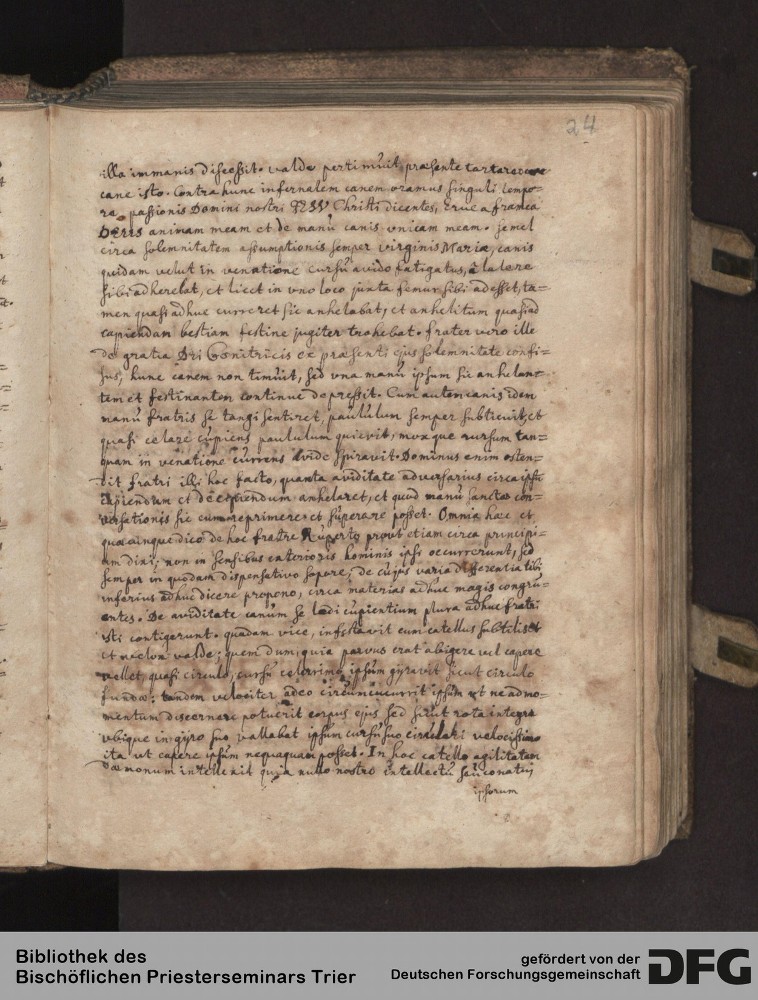 24
illa immanis discessit. valde pertimuit praesente tartareo
cane isto. Contra hunc infernalem canem oramus singuli tempo=
re passionis Domini nostri IESU Christi dicentes, erue a framea
Deus animam meam et de manu canis unicam meam. semel
circa solemnitatem assumptionis semper virginis Mariae, canis
quidam velut in venatione cursu avido fatigatus, a latere
sibi adherebat, et licet in uno loco juxta femur sibi adesset, ta=
men quasi adhuc curreret sic anhelabat, et anhelitum quasi ad
capiendam bestiam festine jugiter trahebat. frater vero ille
de gratia Dei Genitricis ex praesenti ejus solemnitate confi=
sus, hunc canem non timuit, sed una manu ipsum sic anhelan=
tem et festinantem continue depressit. Cum autem canis idem
manu fratris se tangi sentiret, paululum semper subticuit, et
quasi celare cupiens paululum quievit, moxque rursum tan=
quam in venatione currens avide spiravit. Dominus enim osten=
dit fratri illi hoc facto, quanta aviditate adversarius circa ipsum
capiendum et decipiendum anhelaret, et quod manu sanctae con=
versationis sic eum reprimere et superare posset. Omnia haec et
quaecunque dico de hoc fratre Ruperto prout etiam circa principi=
um dixi, non in sensibus exterioris hominis ipsi occurrerunt, sed
semper in quodam dispensativo sopore, de cujus varia differentia tibi
inferius adhuc dicere propono, circa materias adhuc magis congru=
entes. De aviditate canum se laedi cupientium plura adhuc fratri
isti contigerunt. quadam vice, infestavit eum catellus subtilis et
et velox valde; quem dum, quia parvus erat abigere vel capere
vellet, quasi circulo, cursu celerrimo ipsum gyravit sicut circulo
fundae; tandem velociter adeo circumcucurrit ipsum ut ne ad mo=
mentum discernere potuerit corpus ejus sed sicut rota integra
ubique in gyro suo vallabat ipsum cursu suo circulari velocissimo
ita ut capere ipsum nequaquam posset. In hoc catello agilitatem
daemonum intellexit quia nullo nostro intellectu seu conatu
ipsorum
Bibliothek des
Bischöflichen Priesterseminars Trier
gefördert von der
Deutschen Forschungsgemeinschaft
DFG